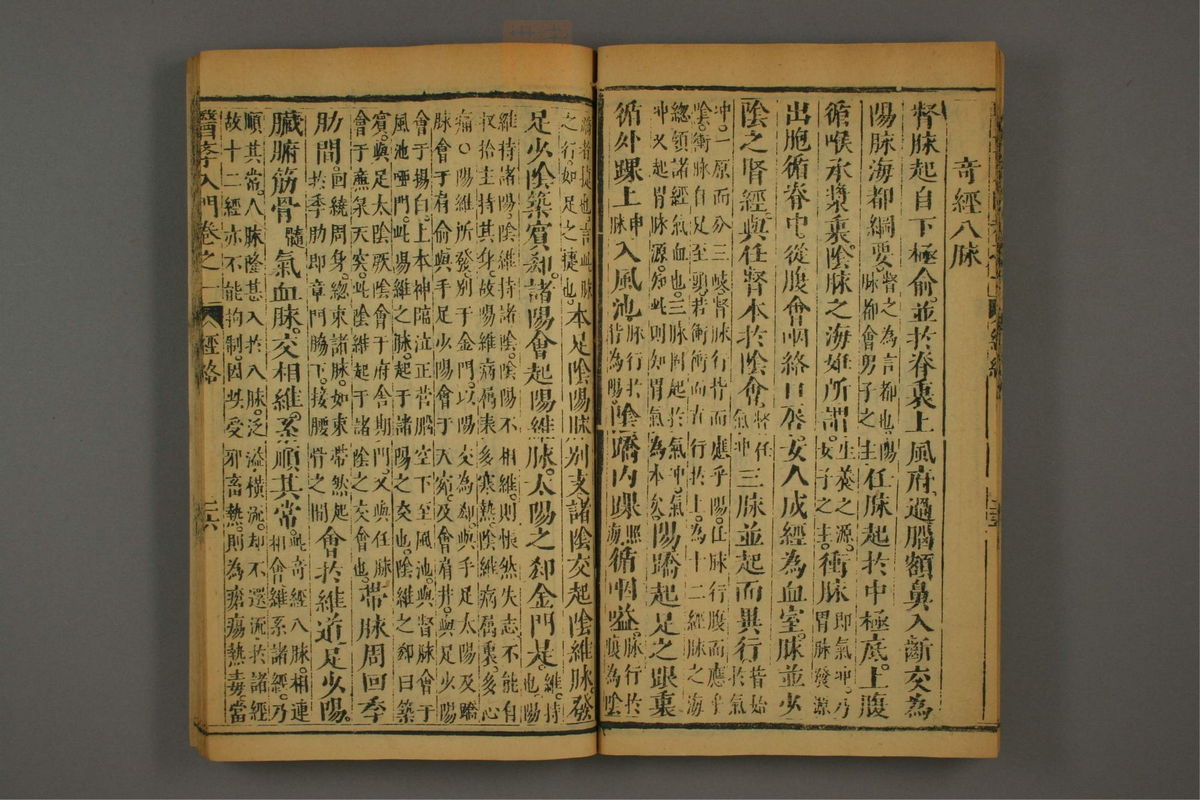 奇經八脉
督脉起自下極俞並於脊裏上風府過腦額鼻入齗交為
陽脉海都綱要督之為言都也陽脉都會男子之主任脉起於中極底上腹
循喉承漿裏陰脉之海妊所謂生養之源女子之主衝脉即氣冲乃胃脉發源
出胞循脊中從腹會咽絡口唇女人成經為血室脉並少
陰之腎經與任督本於陰會督任氣冲三脉並起而異行皆始於氣
冲一原而分三岐督脉行背而應乎陽任脉行腹而應乎
陰衝脉自足至頭若衝衝而直行於上為十二經脉之海
總領諸經氣血也三脉固起於氣冲氣
冲又起胃脉源知此則知胃氣為本矣陽蹻起足之跟裏
循外踝上申脉入風池脉行於背為陽陰蹻內踝照海循咽嗌脉行於腹為陰
蹻者捷也言此脉之行如足之捷也本足陰陽脉别支諸陰交起陰維脉發
足少陰築賓郄諸陽會起陽維脉太陽之郄金門是維持也陽
維持諸陽陰維持諸陰陰陽不相維則悵然失志不能自
收拾主持其身故陽維病屬表多寒熱陰維病屬裏多心
痛○陽維所發别于金門以陽交為郄與手足太陽及蹻
脉會于肩俞與手足少陽會于天窌及會肩井與足少陽
會于揚白上本神臨泣正营腦空下至風池與督脉會于
風池啞門此陽維之脉起于諸陽之交也陰維之郄曰築
賓與足太陰厥陰會于府舍期門又與任脉
會于廉泉天突此陰維起于諸陰之交會也帶脉周回季
肋間回繞周身總束諸脉如束帶然起於季肋即章門脇下接腰骨之間會於維道足少陽
臟腑筋骨髓氣血脉交相維系順其常此奇經八脉相連相會維系諸經乃
順其常八脉隆甚入於八脉泛溢橫流却不還流於諸經
故十二經亦不能拘制因此受邪畜熱則為瘡瘍熱毒當
醫學入門卷之一
經絡
二六